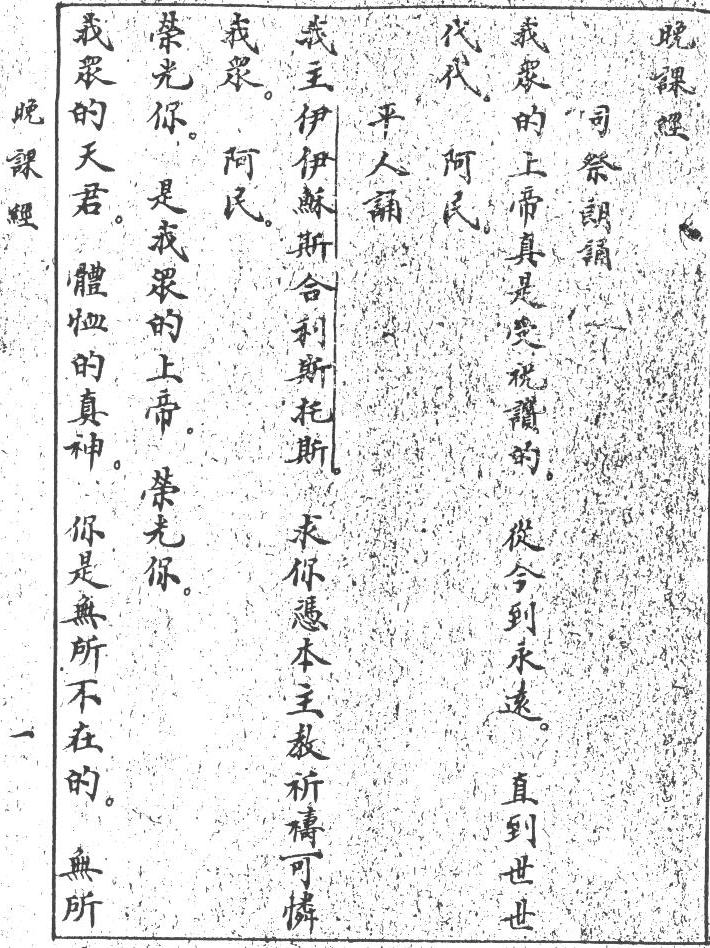 晚課經
司祭朗誦
我眾的上帝真是受祝讚的。 從今到永遠。 直到世世
代代。 阿民。
平人誦
我主伊伊穌斯合利斯托斯。 求你憑本主教祈禱可憐
我眾。 阿民。
榮光你。 是我眾的上帝。 榮光你。
我眾的天君。 體恤的真神。 你是無所不在的。 無所
晚課經 一